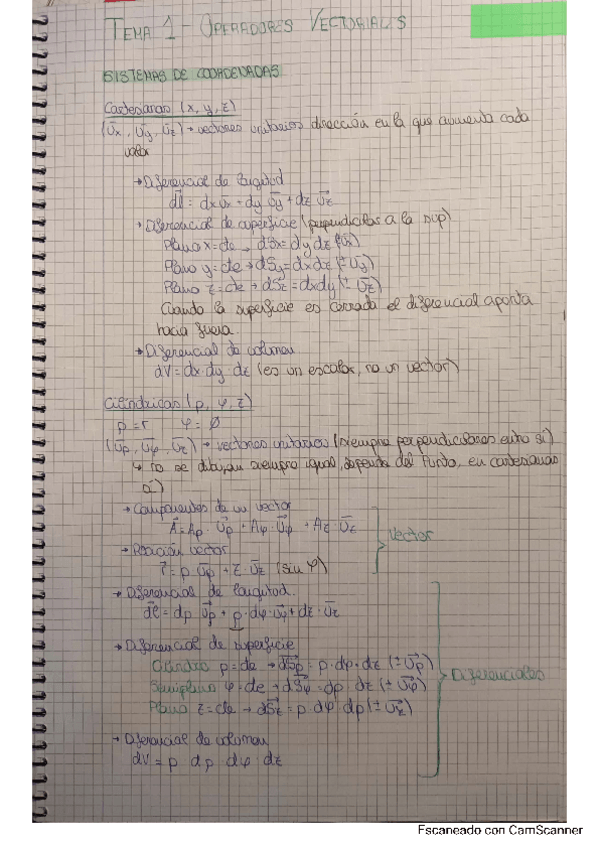 TEMA 1 - OPERADORES VECTORIALES
SISTEMAS DE COORDENADAS
Cartesianas (x, y, z)
(Ux, Uy, Uz) → vectores unitarios dirección en la que aumenta cada
valor
→ Diferencial de longitud
dl = dx Ux + dy Uy + dz Uz
→ Diferencial de superficie (perpendicular a la sup)
Plano x = cte → dSx = dy dz (±Ux)
Plano y = cte → dSy = dx dz (± Uy)
Plano z = cte → dSz = dx dy (± Uz)
Cuando la superficie es cerrada el diferencial apunta
hacia fuera.
→ Diferencial de volumen
dV = dx · dy · dz (es un escalar, no un vector)
Cilíndricas (ρ, φ, z)
ρ = r φ = Ø
(Uρ, Uφ, Uz) → vectores unitarios (siempre perpendiculares entre sí)
↳ no se dibujan siempre igual, depende del punto, en cartesianas
sí)
→ Componentes de un vector
A = Aρ · Uρ + Aφ · Uφ + Az · Uz
Vector
→ Posición vector
r = ρ · Uρ + z · Uz (sin φ)
→ Diferencial de longitud.
dl = dρ · Uρ + ρ · dφ · Uφ + dz · Uz
→ Diferencial de superficie
Cilindro ρ = cte → dSρ = ρ · dφ · dz (± Uρ)
Semiplano φ = cte → dSφ = dρ · dz (± Uφ)
Diferenciales
Plano z = cte → dSz = ρ · dφ · dρ (± Uz)
→ Diferencial de volumen
dV = ρ · dρ · dφ · dz
Escaneado con CamScanner